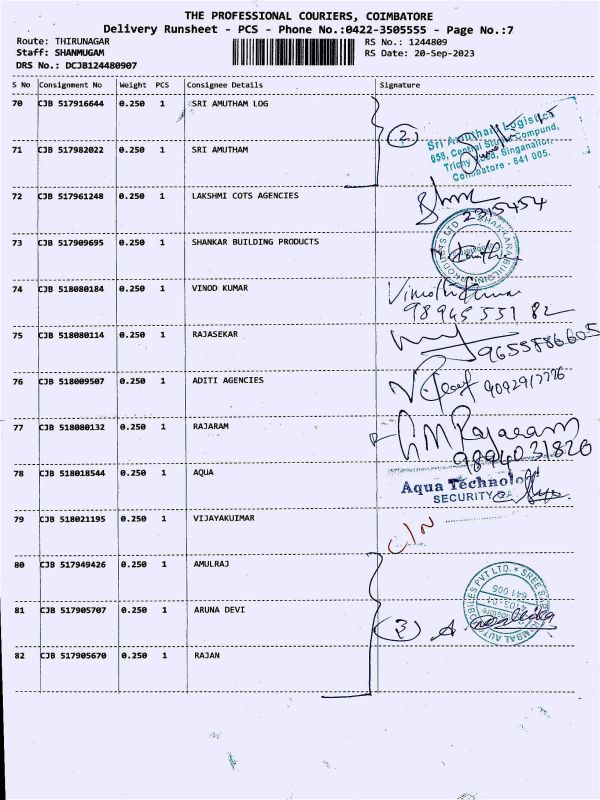 THE PROFESSIONAL COURIERS, COIMBATORE
Delivery Runsheet - PCS - Phone No.:0422-3505555 - Page No.:7
Route: THIRUNAGAR RS No.: 1244809
Staff: SHANMUGAM RS Date: 20-Sep-2023
DRS No.: DCJB124480907
S No Consignment No Weight PCS Consignee Details Signature
70 CJB 517916644 0.250 1 SRI AMUTHAM LOG
2
Sri Amutham Logistics
658, Central Studio Compund,
Trichy Road, Singanallor,
Coimbatore - 641 005.
71 CJB 517982022 0.250 1 SRI AMUTHAM
72 CJB 517961248 0.250 1 LAKSHMI COTS AGENCIES
2315454
73 CJB 517909695 0.250 1 SHANKAR BUILDING PRODUCTS
74 CJB 518080184 0.250 1 VINOD KUMAR
98945 551 82
75 CJB 518080114 0.250 1 RAJASEKAR
9655586605
76 CJB 518009507 0.250 1 ADITI AGENCIES
9092917776
77 CJB 518080132 0.250 1 RAJARAM
GM Rajaram
9894031826
78 CJB 518018544 0.250 1 AQUA
Aqua Technolo
SECURITY
79 CJB 518021195 0.250 1 VIJAYAKUIMAR
C/N
80 CJB 517949426 0.250 1 AMULRAJ
81 CJB 517905707 0.250 1 ARUNA DEVI
3
82 CJB 517905670 0.250 1 RAJAN